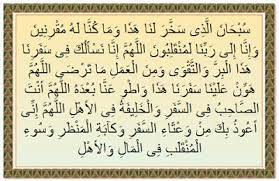 سُبْحَانَ الَّذِي سَخَّرَ لَنَا هَذَا وَمَا كُنَّا لَهُ مُقْرِنِينَ
وَإِنَّا إِلَى رَبِّنَا لَمُنْقَلِبُونَ اللَّهُمَّ إِنَّا نَسْأَلُكَ فِي سَفَرِنَا
هَذَا الْبِرَّ وَالتَّقْوَى وَمِنَ الْعَمَلِ مَا تَرْضَى اللَّهُمَّ
هَوِّنْ عَلَيْنَا سَفَرَنَا هَذَا وَاطْوِ عَنَّا بُعْدَهُ اللَّهُمَّ أَنْتَ
الصَّاحِبُ فِي السَّفَرِ وَالْخَلِيفَةُ فِي الأَهْلِ اللَّهُمَّ إِنِّي
أَعُوذُ بِكَ مِنْ وَعْثَاءِ السَّفَرِ وَكَآبَةِ الْمَنْظَرِ وَسُوءِ
الْمُنْقَلَبِ فِي الْمَالِ وَالأَهْلِ